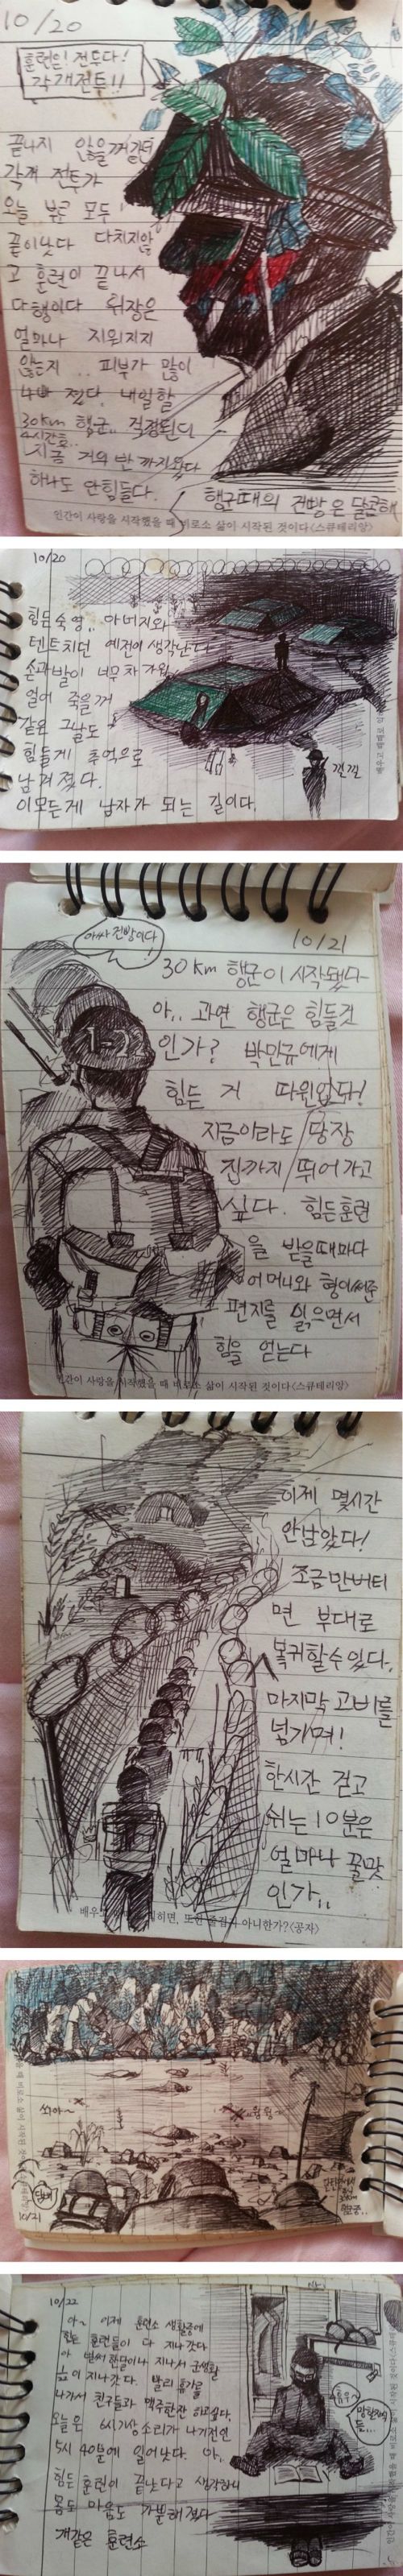 10/20
훈련은! 전투다!
각개전투!!
끝나지 않을꺼 같던
각개 전투가
오늘 부로 모두
끝이났다 다치지않
고 훈련이 끝나서
다행이다 위장은
얼마나 지워지지
않든지.. 피부가 많이
졌다. 내일할
30km 행군.. 걱정된다
4시간후..
지금 거의 반까지왔다
하나도 안힘들다.
행군때의 건빵은 달콤해
인간이 사랑을 시작했을 때 비로소 삶이 시작된 것이다<스큐테리앙>
10/20
힘든숙영.. 아버지와
텐트치던 예전이 생각난다
손과발이 너무 차가워
얼어 죽을꺼
같은 그날도
힘들게 추억으로
남겨졌다.
이모든게 남자가 되는 길이다.
낄낄
아싸 건빵이다
10/21
1-22
30km 행군이 시작됐다
아.. 과연 행군은 힘들것
인가? 박민규에게
힘든 거 따윈없다!
지금이라도 당장
집까지 뛰어가고
싶다. 힘든훈련
을 받을때마다
어머니와 형이써준
편지를 읽으면서
힘을 얻는다
인간이 사랑을 시작했을 때 비로소 삶이 시작된 것이다<스큐테리앙>
이제 몇시간
안남았다!
조금만버티
면 부대로
복귀할수있다.
마지막 고비를
넘기며!
한시간 걷고
쉬는 10분은
얼마나 꿀맛
인가..
배우고 익히면, 또한 즐겁지 아니한가?<공자>
쏴아~
10/21
10/22
아~ 이제 훈련소 생활중에
힘든 훈련들이 다 지나갔다
아 벌써 한달이나 지나서 군생활
이 지나갔다. 빨리 휴가를
나가서 친구들과 맥주한잔 하고싶다.
오늘은 6시기상소리가 나기전인
5시 40분에 일어났다. 아.
힘든 훈련이 끝났다고 생각하니
몸도 마음도 가뿐해졌다
개같은 훈련소